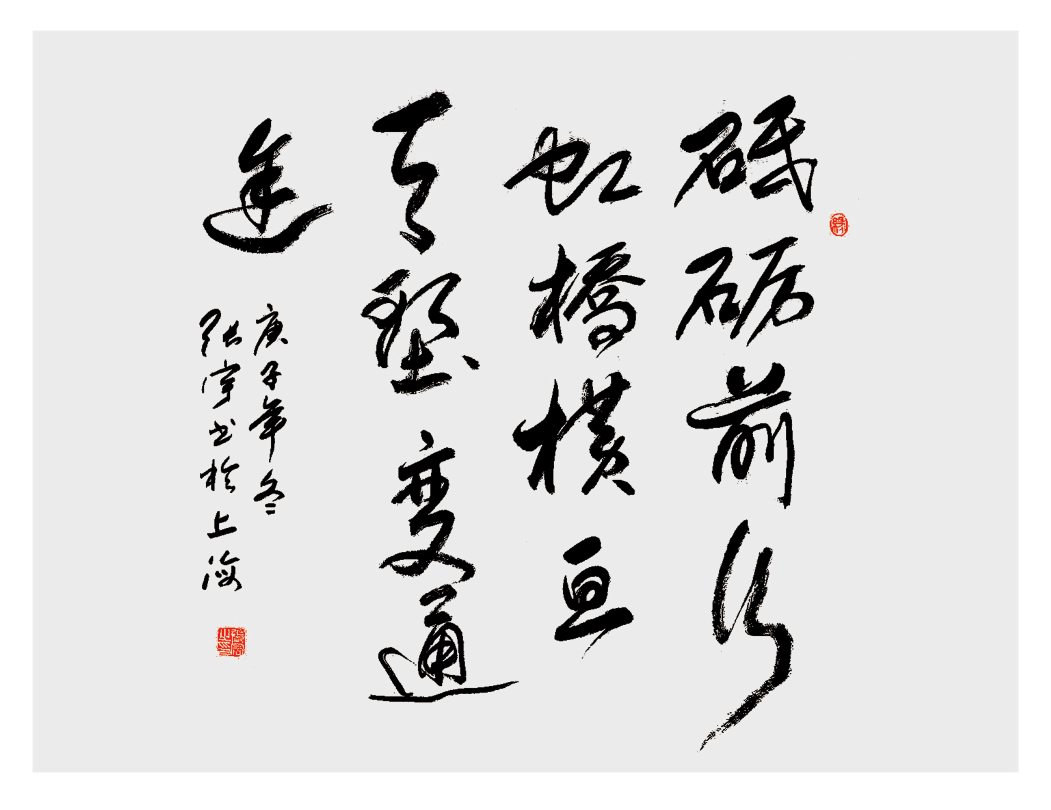 砥砺前行
虹橋横亘
天堑变通
途
庚子年冬
张宇书於上海